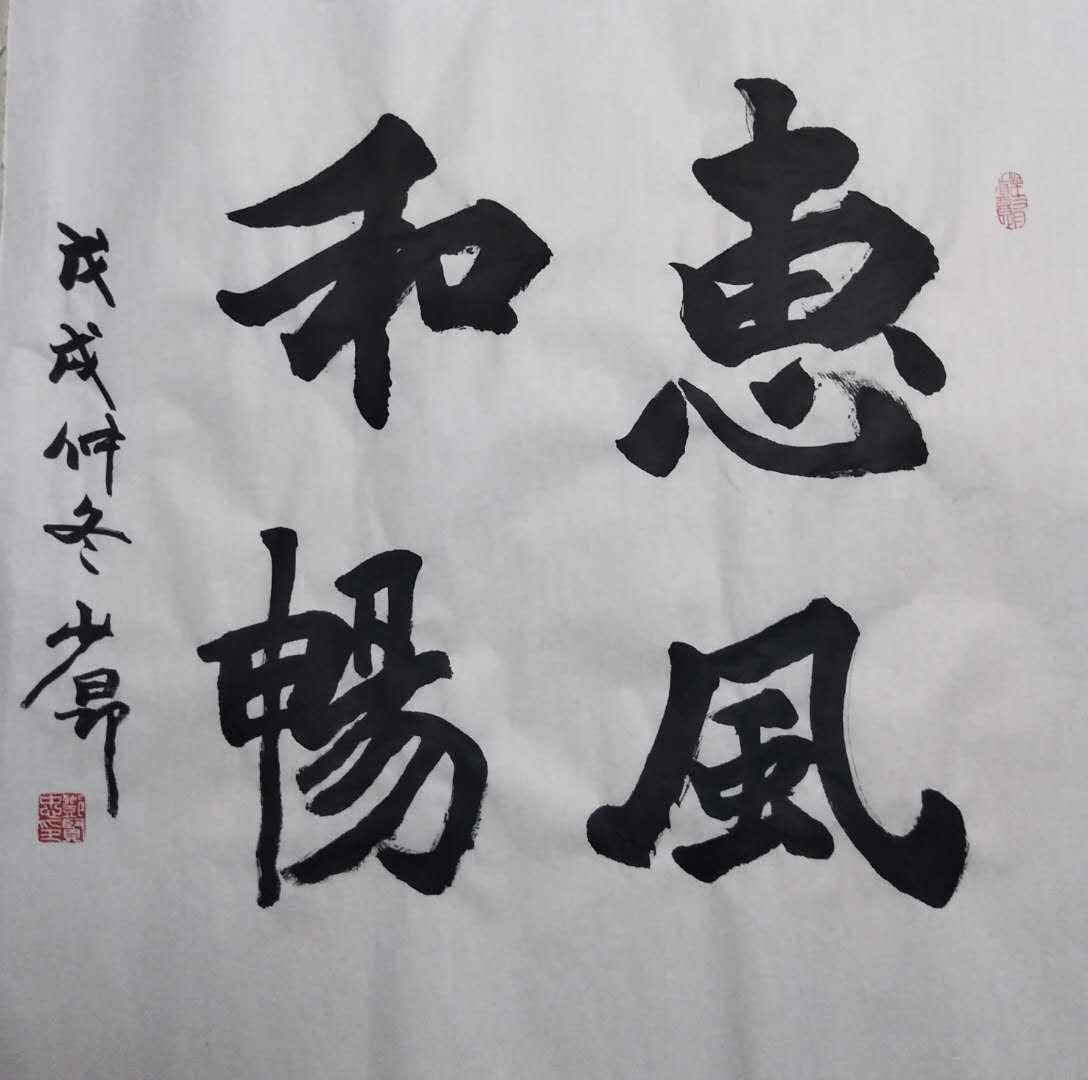 惠風
和暢
戊戌仲冬少昂